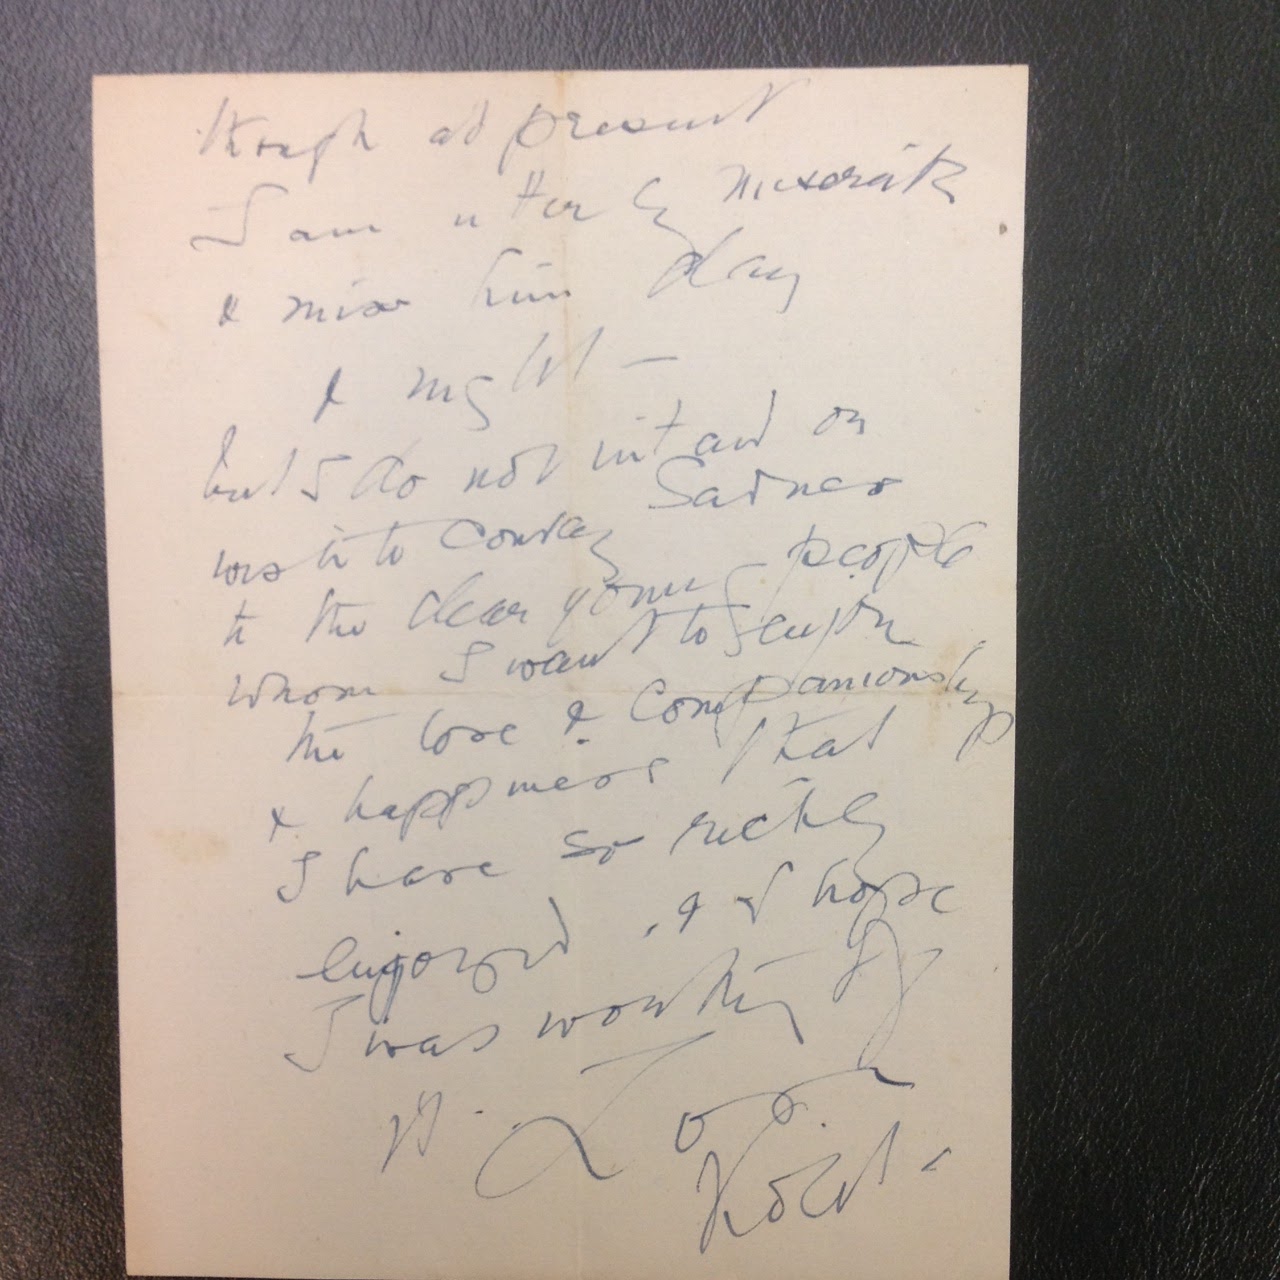 though at present
I am utterly miserable
& miss him day
& night —
but I do not intend or
wish to convey Sadness
to the dear young people
whom I want to enjoy
the love & companionship
& happiness that
I have so richly
enjoyed, & I hope
I was worthy of
it.